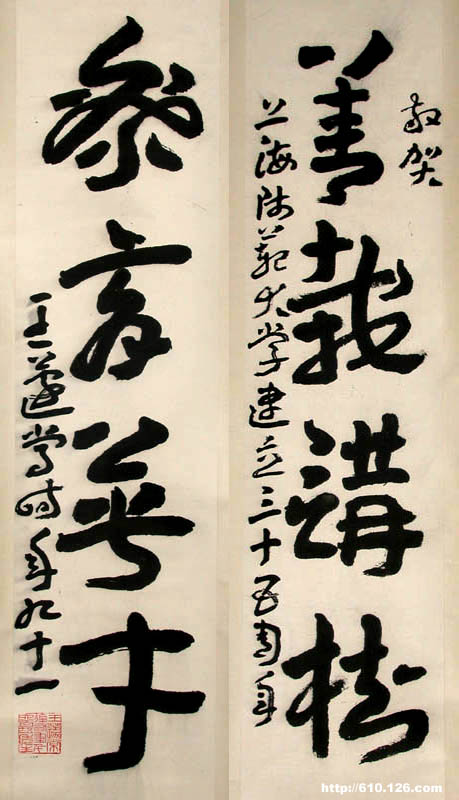 敬贺
菁莪講樹
上海师范大学建立三十五周年
參彥華才
王蘧常时年九十一
http://610.126.com